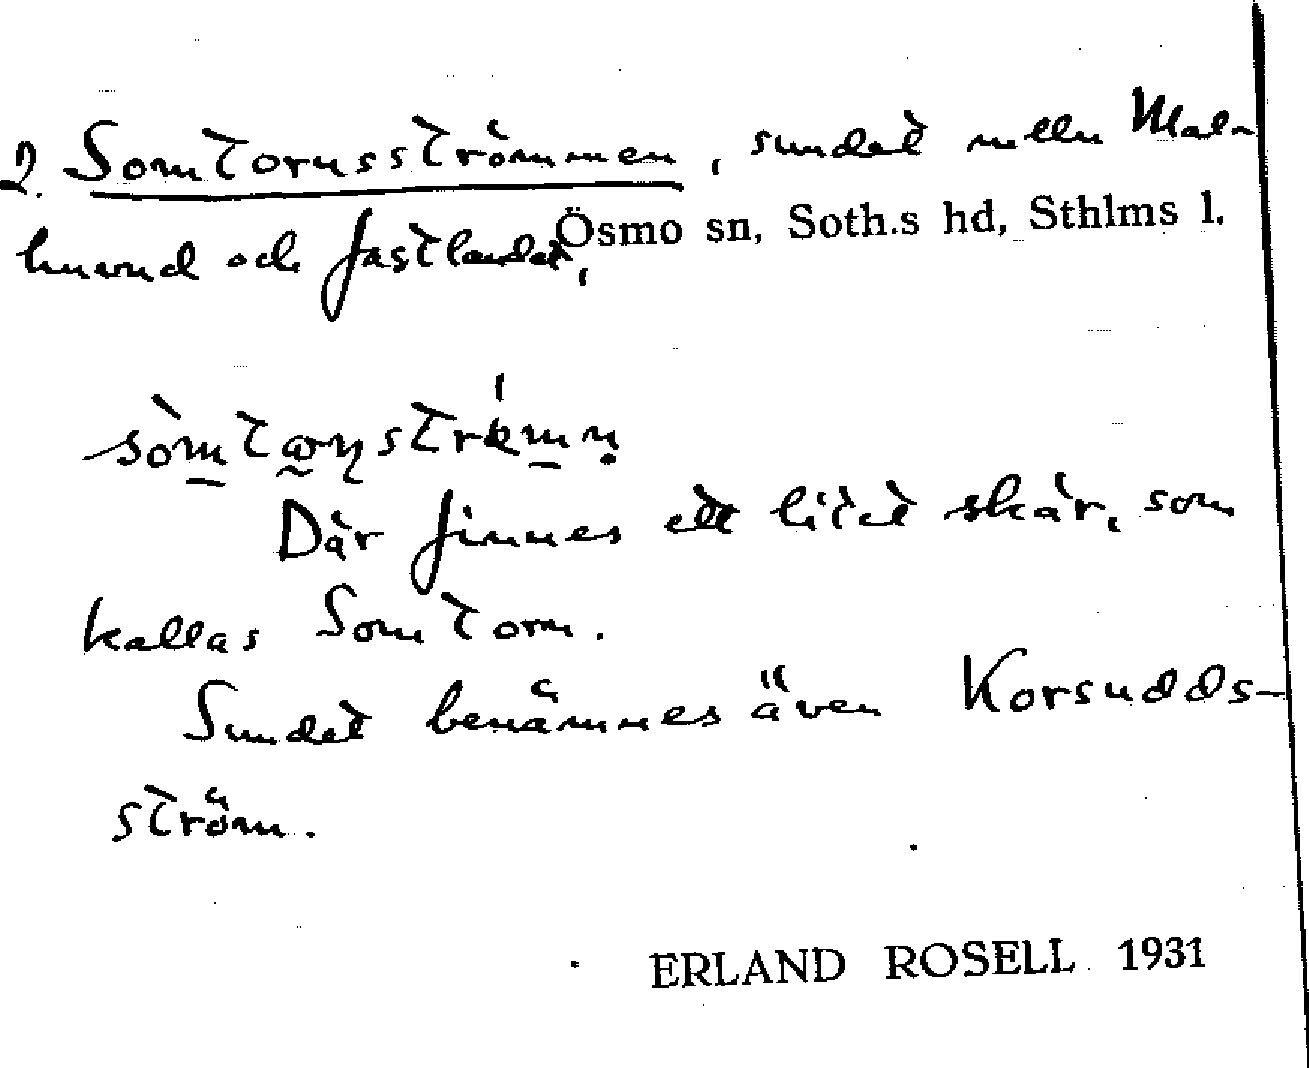 2. Somtornsströmmen, sundet melln Mal-
huvud och fastlandet,
Ösmo sn, Soth.s hd, Sthlms l.
Där finnes ett litet skär, som
kallas Somtorn.
Sundet benämnes även Korsudds-
ström.
ERLAND ROSELL 1931